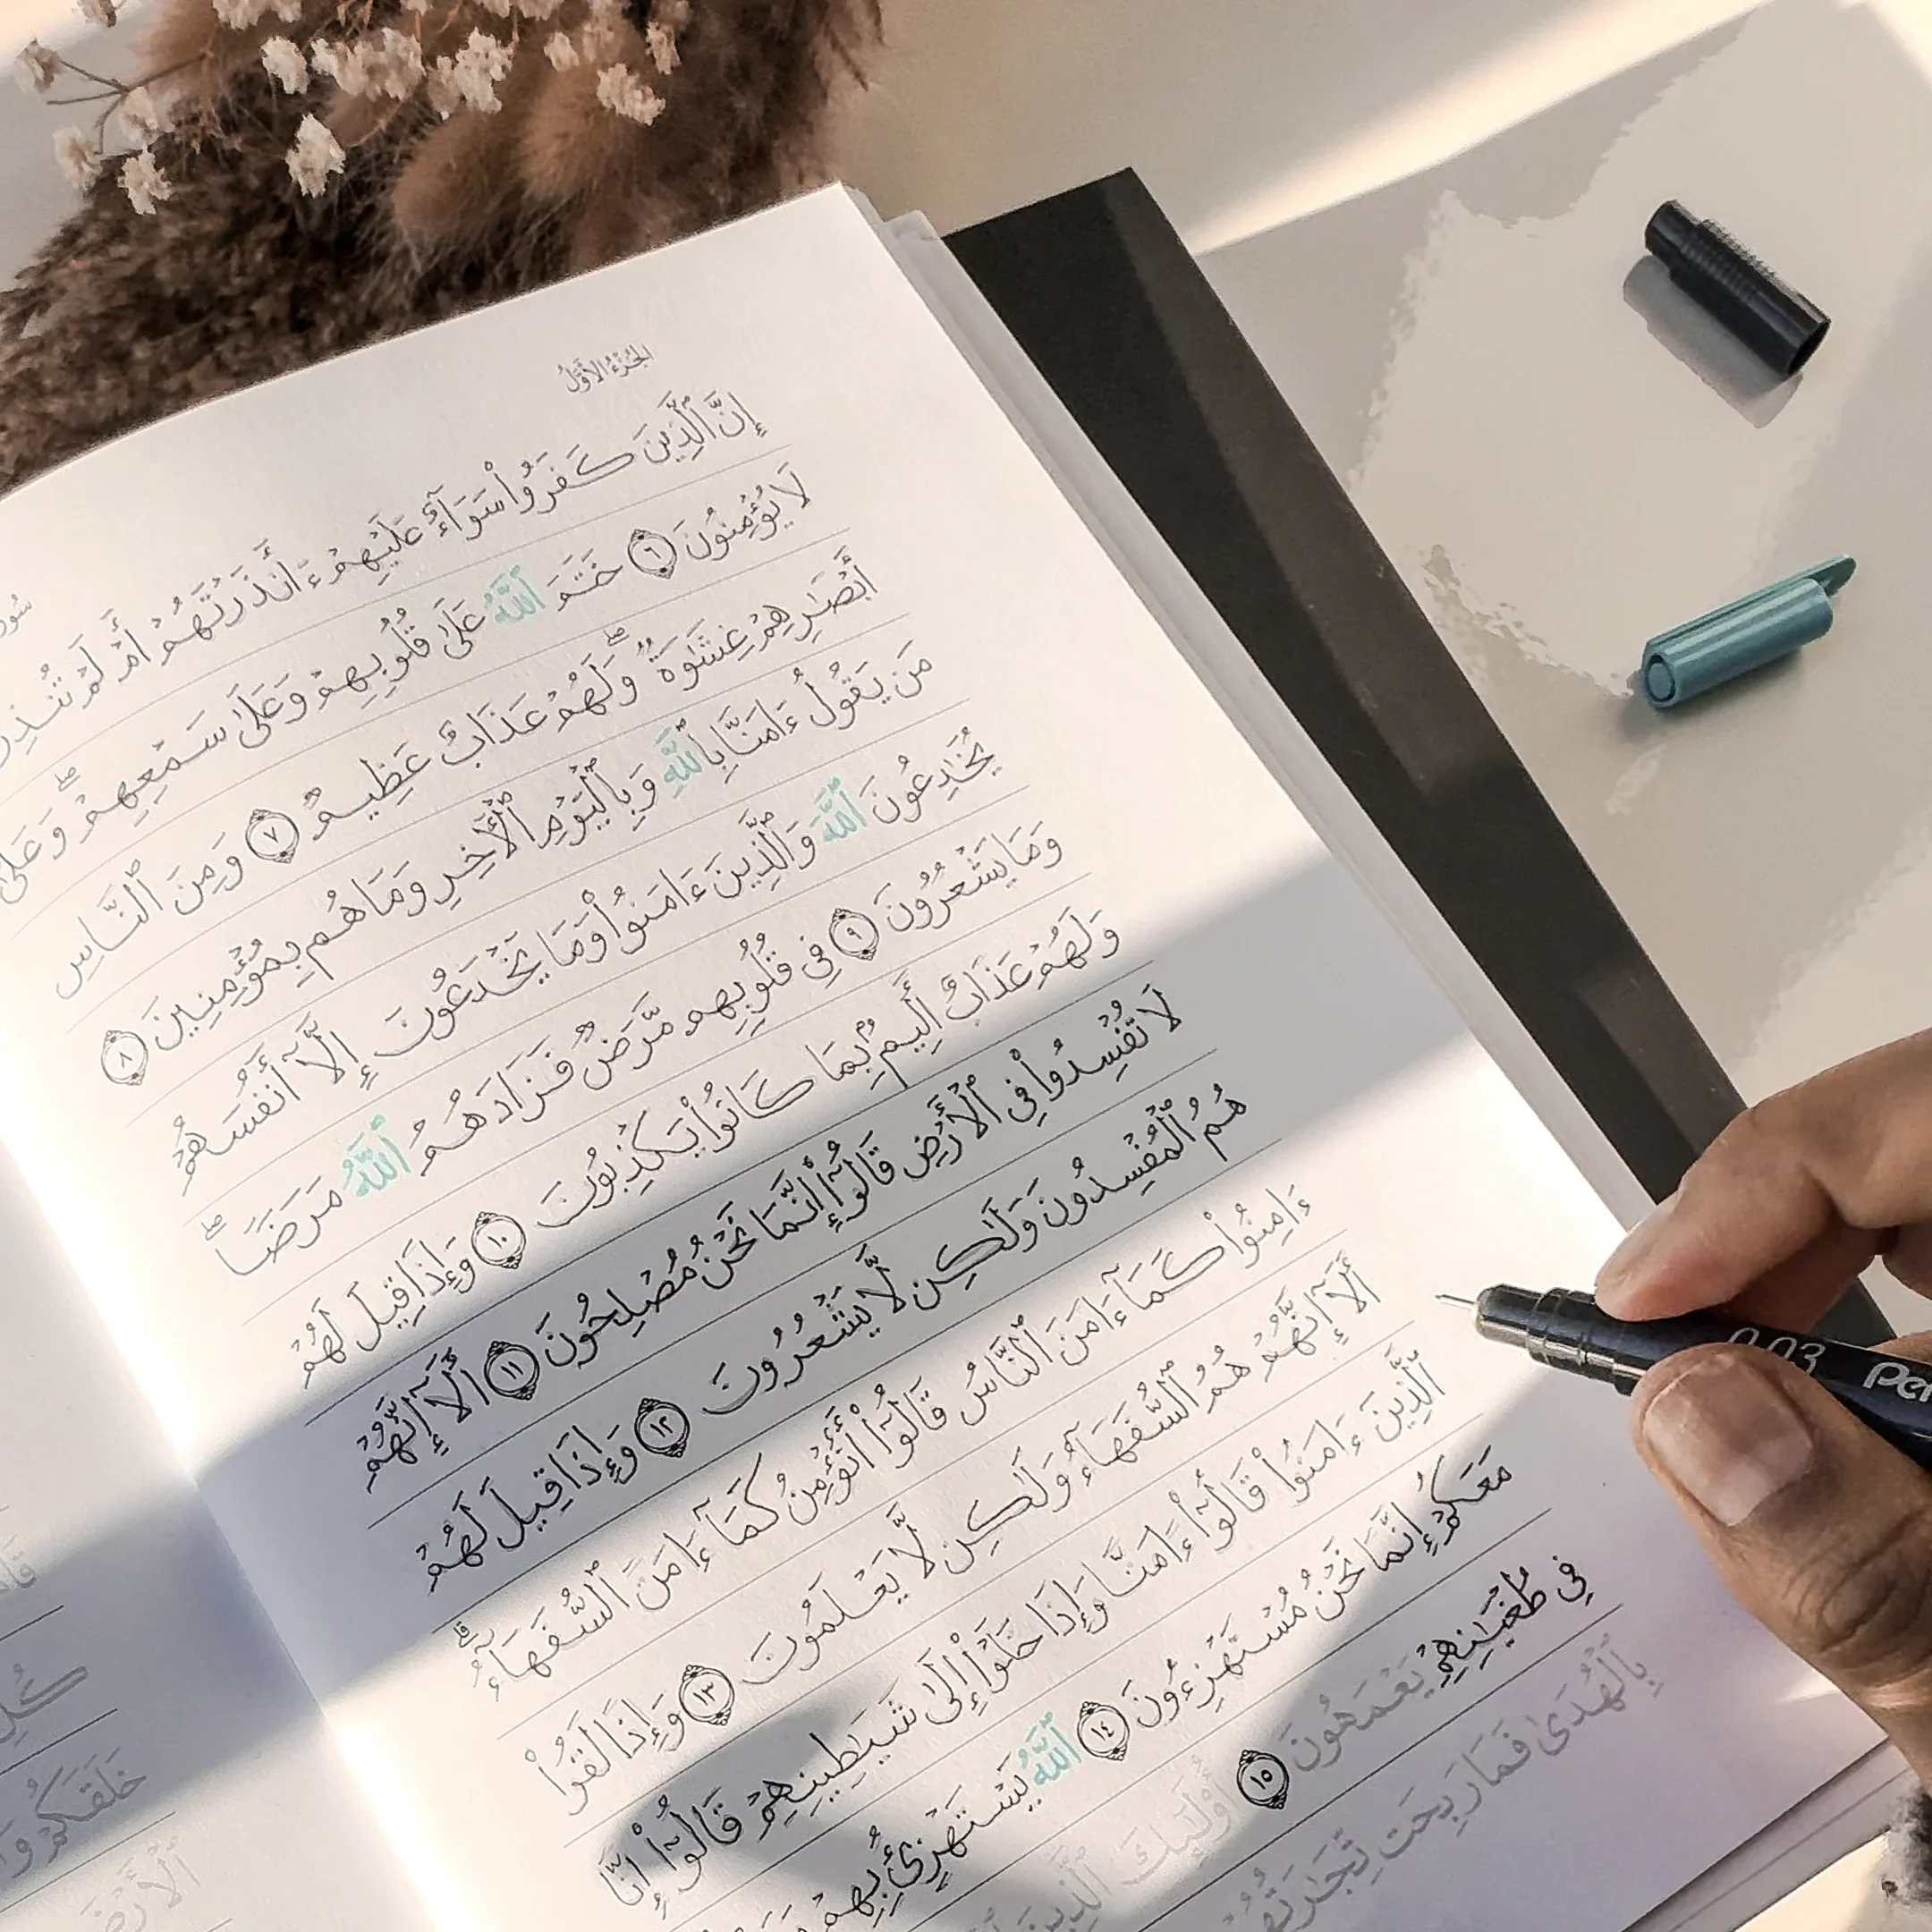 الجُزْءُ الأَوَّلُ
إِنَّ ٱلَّذِينَ كَفَرُوا۟ سَوَآءٌ عَلَيْهِمْ ءَأَنذَرْتَهُمْ أَمْ لَمْ
لَا يُؤْمِنُونَ ٦ خَتَمَ ٱللَّهُ عَلَىٰ قُلُوبِهِمْ وَعَلَىٰ سَمْعِهِمْ ۖ وَعَلَىٰ
أَبْصَٰرِهِمْ غِشَٰوَةٌ ۖ وَلَهُمْ عَذَابٌ عَظِيمٌ ٧ وَمِنَ ٱلنَّاسِ
مَن يَقُولُ ءَامَنَّا بِٱللَّهِ وَبِٱلْيَوْمِ ٱلْءَاخِرِ وَمَا هُم بِمُؤْمِنِينَ ٨
يُخَٰدِعُونَ ٱللَّهَ وَٱلَّذِينَ ءَامَنُوا۟ وَمَا يَخْدَعُونَ إِلَّآ أَنفُسَهُمْ
وَمَا يَشْعُرُونَ ٩ فِى قُلُوبِهِم مَّرَضٌ فَزَادَهُمُ ٱللَّهُ مَرَضًا ۖ
وَلَهُمْ عَذَابٌ أَلِيمٌۢ بِمَا كَانُوا۟ يَكْذِبُونَ ١٠ وَإِذَا قِيلَ لَهُمْ
لَا تُفْسِدُوا۟ فِى ٱلْأَرْضِ قَالُوٓا۟ إِنَّمَا نَحْنُ مُصْلِحُونَ ١١ أَلَآ إِنَّهُمْ
هُمُ ٱلْمُفْسِدُونَ وَلَٰكِن لَّا يَشْعُرُونَ ١٢ وَإِذَا قِيلَ لَهُمْ
ءَامِنُوا۟ كَمَآ ءَامَنَ ٱلنَّاسُ قَالُوٓا۟ أَنُؤْمِنُ كَمَآ ءَامَنَ ٱلسُّفَهَآءُ ۗ
أَلَآ إِنَّهُمْ هُمُ ٱلسُّفَهَآءُ وَلَٰكِن لَّا يَعْلَمُونَ ١٣ وَإِذَا لَقُوا۟
ٱلَّذِينَ ءَامَنُوا۟ قَالُوٓا۟ ءَامَنَّا وَإِذَا خَلَوْا۟ إِلَىٰ شَيَٰطِينِهِمْ قَالُوٓا۟ إِنَّا
مَعَكُمْ إِنَّمَا نَحْنُ مُسْتَهْزِءُونَ ١٤ ٱللَّهُ يَسْتَهْزِئُ بِهِمْ
فِى طُغْيَٰنِهِمْ يَعْمَهُونَ ١٥ أُو۟لَٰٓئِكَ ٱلَّذِينَ
بِٱلْهُدَىٰ فَمَا رَبِحَت تِّجَٰرَتُهُمْ
0.03